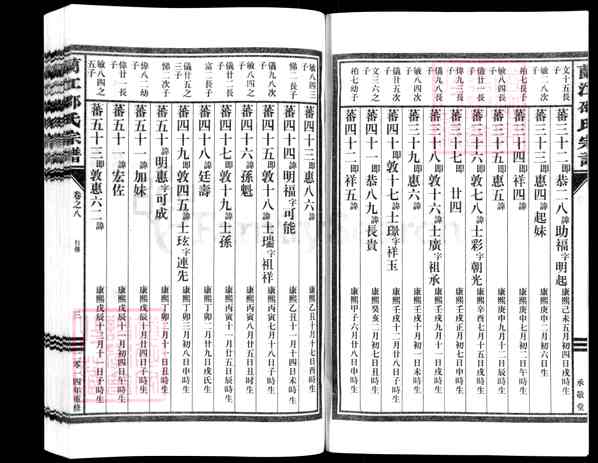 蘭江邵氏宗譜
承敬堂
文十五長子
蕃三十一即恭二八諱助福字明起
康熙己未五月初四日戌時生
敏一八次子
蕃三十二即惠四諱起妹
康熙庚申二月初六日生
柏七長子
蕃三十四諱祥四
康熙庚申七月初二日午時生
儀廿五長子
蕃三十五即惠五諱
康熙庚申九月十二日辰時生
儀廿一長子
蕃三十六即敦七八諱士彩字朝光
康熙辛酉七月十五日戌時生
偉九三長子
蕃三十七即諱廿四
康熙壬戌正月初七日戌時生
儀九八長子
蕃三十八即敦十六諱士廣字祖承
康熙壬戌九月十一日戌時生
儀廿五次子
蕃四十即敦十七諱士璟字祥玉
康熙壬戌十二月廿二日未時生
文三六之子
蕃四十一即恭八九諱長貴
康熙癸亥二月初七日丑時生
柏七幼子
蕃四十二諱祥五
康熙甲子六月廿八日申時生
敏八四三子
蕃四十三即惠八六諱
康熙乙丑十月十七日酉時生
悌二一長子
蕃四十四諱明福字可能
康熙乙丑十一月十四日未時生
儀九八次子
蕃四十五即敦十八諱士瑞字祖祥
康熙丙寅七月十八日子時生
敏八四之子
蕃四十六諱孫魁
康熙丙寅八月廿五日丑時生
儀廿二長子
蕃四十七即敦十九諱士孫
康熙丙寅十一月廿五日辰時生
富二長子
蕃四十八諱廷壽
康熙丁卯二月廿九日戌氏生
儀廿五之三子
蕃四十九即敦四五諱士玹字連先
康熙丁卯二月初八日申時生
悌二次子
蕃五十諱明惠字可成
康熙丁卯三月十一日丑時生
偉八二幼子
蕃五十一諱加妹
康熙戊辰十月廿四日子時生
偉廿一長子
蕃五十一諱宏佐
康熙戊辰十一月初四日午時生
敏八四之五子
蕃五十三即敦惠六二諱
康熙戊辰十三月十一日子時生
蘭江邵氏宗譜
卷之八
行傳
三
二零一四年重修